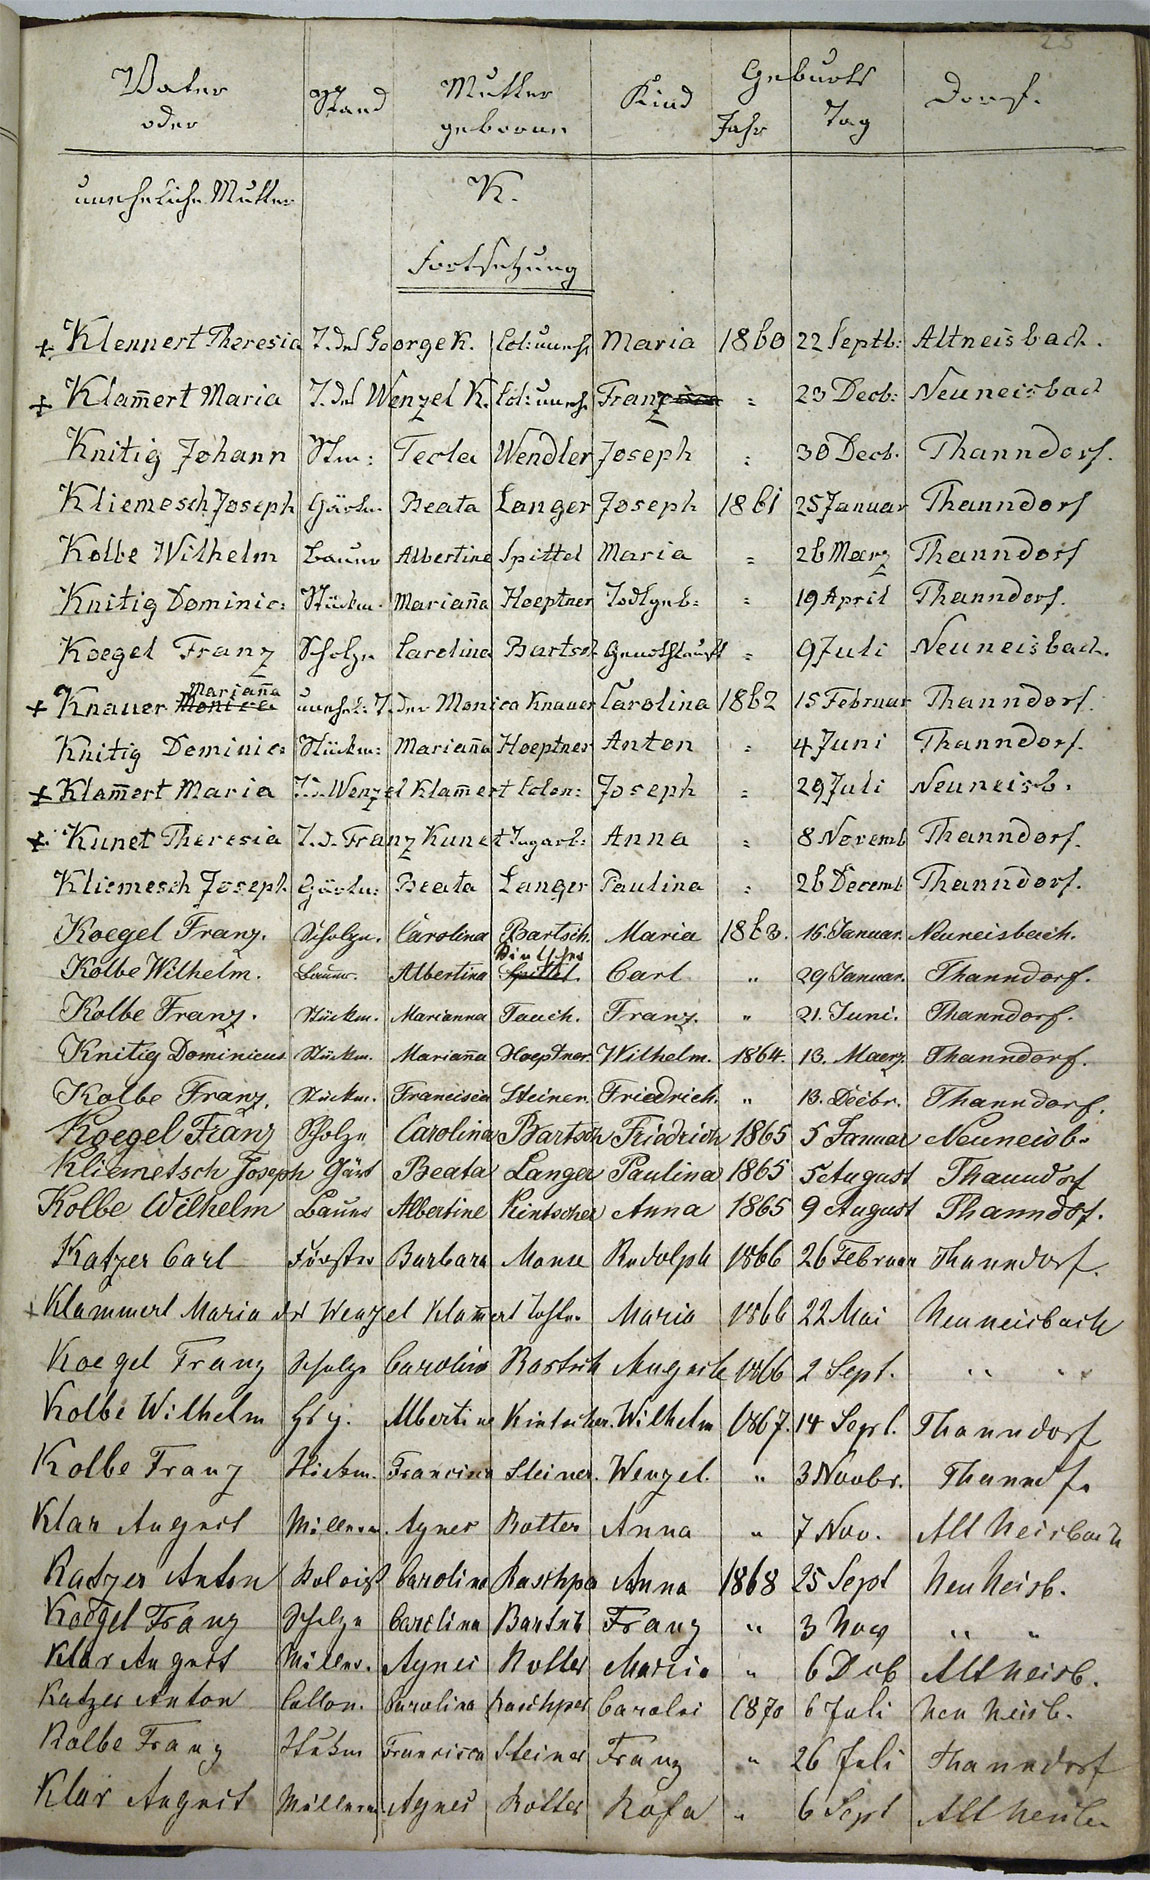 25
Vater Stand Mutter Kind Geburts Dorf.
oder geborne Jahr Tag
uneheliche Mutter K.
Fortsetzung
+ Klennert Theresia T. des George K. Col: unehl Maria 1860 22 Septb: Altneisbach.
+ Klam̄ert Maria T. des Wenzel K. Col: uneh. Franz " 23 Decb: Neuneisbach
Knitig Johann Stm: Tecla Wendler Joseph " 30 Decb. Thanndorf.
Kliemesch Joseph Gärtn. Beata Langer Joseph 1861 25 Januar Thanndorf
Kolbe Wilhelm Bauer Albertine Spittel Maria " 26 Maerz Thanndorf
Knitig Dominic: Stückm. Marian̄a Hoeptner Todtgeb: " 19 April Thanndorf.
Koegel Franz Scholze Carolina Bartsch " 9 Juli Neuneisbach.
+ Knauer Marian̄a unehel: T. der Monica Knauer Carolina 1862 15 Februar Thanndorf.
Knitig Dominic: Stückm: Marian̄a Hoeptner Anton " 4 Juni Thanndorf.
+ Klam̄ert Maria T. d. Wenzel Klam̄ert Colon: Joseph " 29 Juli Neuneisb.
+ Kunet Theresia T. d. Franz Kunet Tagarb: Anna " 8 Novemb Thanndorf.
Kliemesch Joseph Gärtn: Beata Langer Paulina " 26 Decemb Thanndorf.
Koegel Franz. Scholze. Carolina Bartsch. Maria 1863. 16. Januar. Neuneisbach.
Kolbe Wilhelm. Bauer. Albertina Kintscher Carl " 29 Januar. Thanndorf.
Kolbe Franz. Stückm. Marianna Tauch. Franz. " 21. Juni. Thanndorf.
Knitig Dominicus Stückm. Marian̄a Hoeptner Wilhelm. 1864. 13. Maerz. Thanndorf.
Kolbe Franz. Stückm. Francisca Steiner. Friedrich. " 13. Decbr. Thanndorf.
Koegel Franz Scholze Carolina Bartsch Friedrich 1865 5 Januar Neuneisb.
Kliemetsch Joseph Gärt Beata Langer Paulina 1865 5 August Thanndorf
Kolbe Wilhelm Bauer Albertine Kintscher Anna 1865 9 August Thanndorf.
Katzer Carl Förster Barbara Monse Rudolph 1866 26 Februar Thanndorf.
+ Klammert Maria des Wenzel Klam̄ert Tochter Maria 1866 22 Mai Neuneisbach
Koegel Franz Scholze Carolina Bartsch August 1866 2 Sept. " "
Kolbe Wilhelm Albertine Kintscher. Wilhelm 1867. 14 Sept. Thanndorf
Kolbe Franz Stückm. Francisca Steiner. Wenzel. " 3 Novbr. Thanndf.
Klar August Müllerm. Agnes Rotter Anna " 7 Nov. Alt Neisbach
Katzer Anton Kolnist Carolina Raschper Anna 1868 25 Sept Neu Neisb.
Koegel Franz Scholze Carolina Bartsch Franz " 3 Nov " "
Klar August Müller. Agnes Rotter Maria " 6 Dcb Alt Neisb.
Katzer Anton Collon. Carolina Raschper Carolei 1870 6 Juli Neu Neisb.
Kolbe Franz Stückm Francisca Steiner Franz " 26 Juli Thanndorf
Klar August Müllerm Agnes Rotter Rosa " 6 Sept